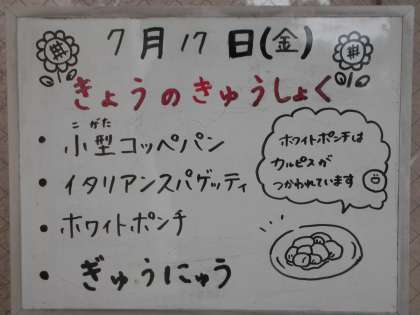 7月17日(金)
きょうのきゅうしょく
こがた
・小型コッペパン
・イタリアンスパゲッティ
・ホワイトポンチ
・ぎゅうにゅう
ホワイトポンチは
カルピスが
つかわれています